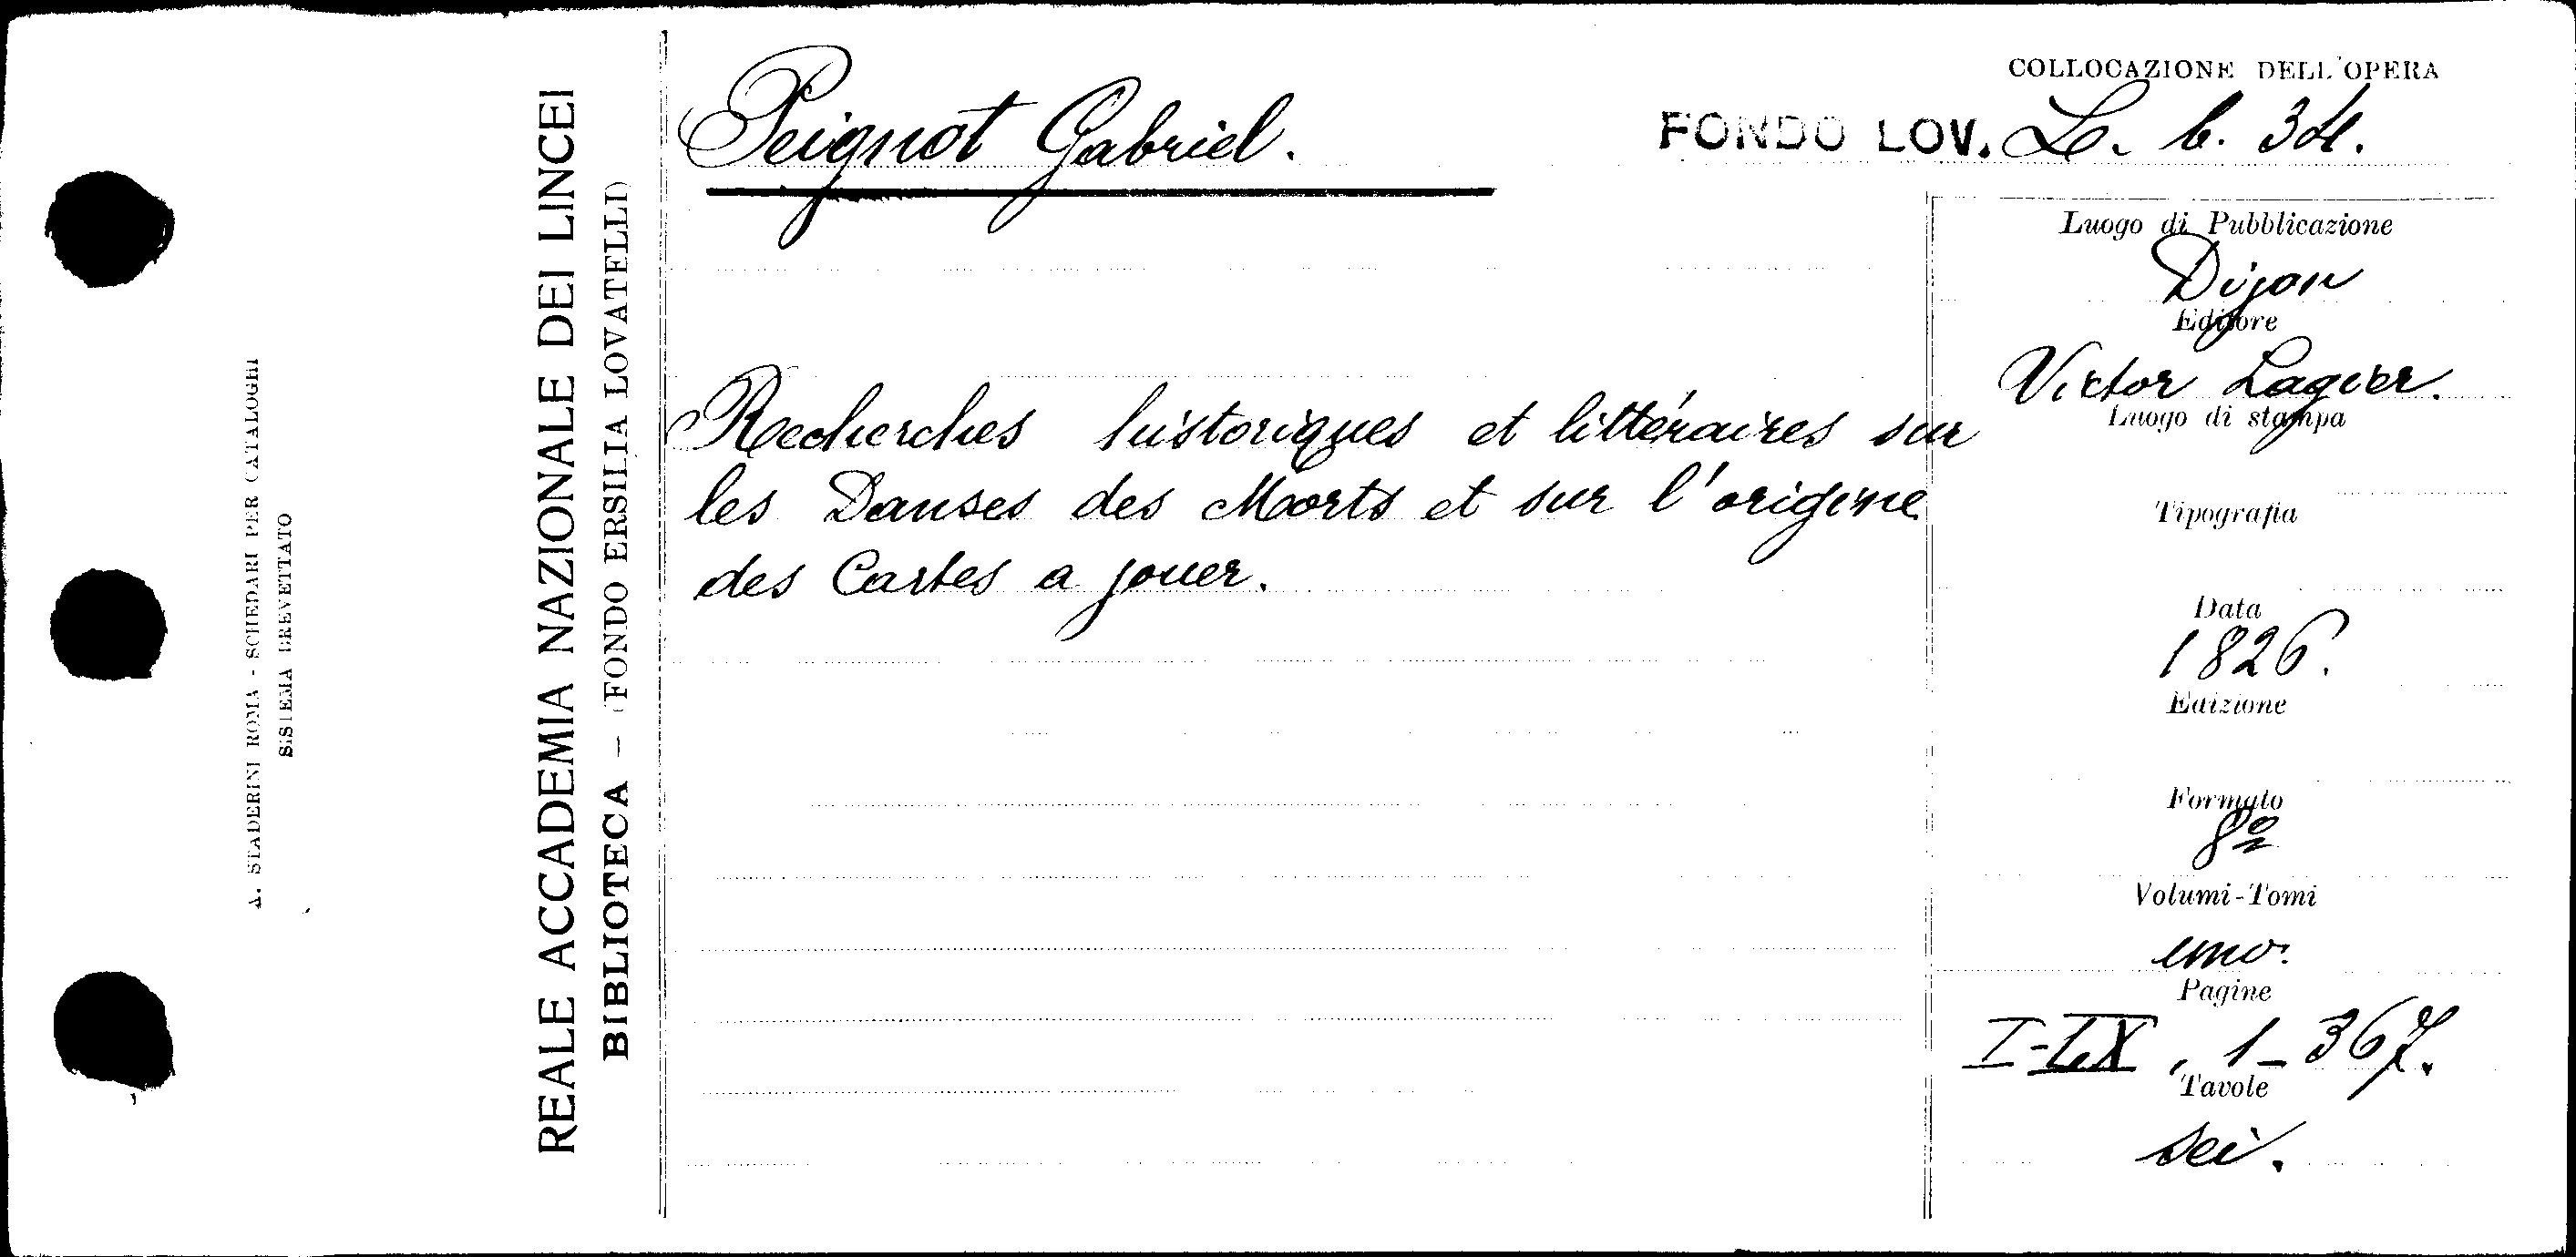 A. STADERINI ROMA - SCHEDARI PER CATALOGHI
SISTEMA BREVETTATO
REALE ACCADEMIA NAZIONALE DEI LINCEI
BIBLIOTECA - (FONDO ERSILIA LOVATELLI)
Peignot Gabriel.
COLLOCAZIONE DELL'OPERA
FONDO LOV. L. b. 34.
Recherches historiques et littéraires sur
les Danses des Morts et sur l'origine
des Cartes a jouer.
Luogo di Pubblicazione
Dijon
Editore
Victor Lagier.
Luogo di stampa
Tipografia
Data
1826.
Edizione
Formato
8º
Volumi-Tomi
uno.
Pagine
I-LX, 1-367.
Tavole
sei.